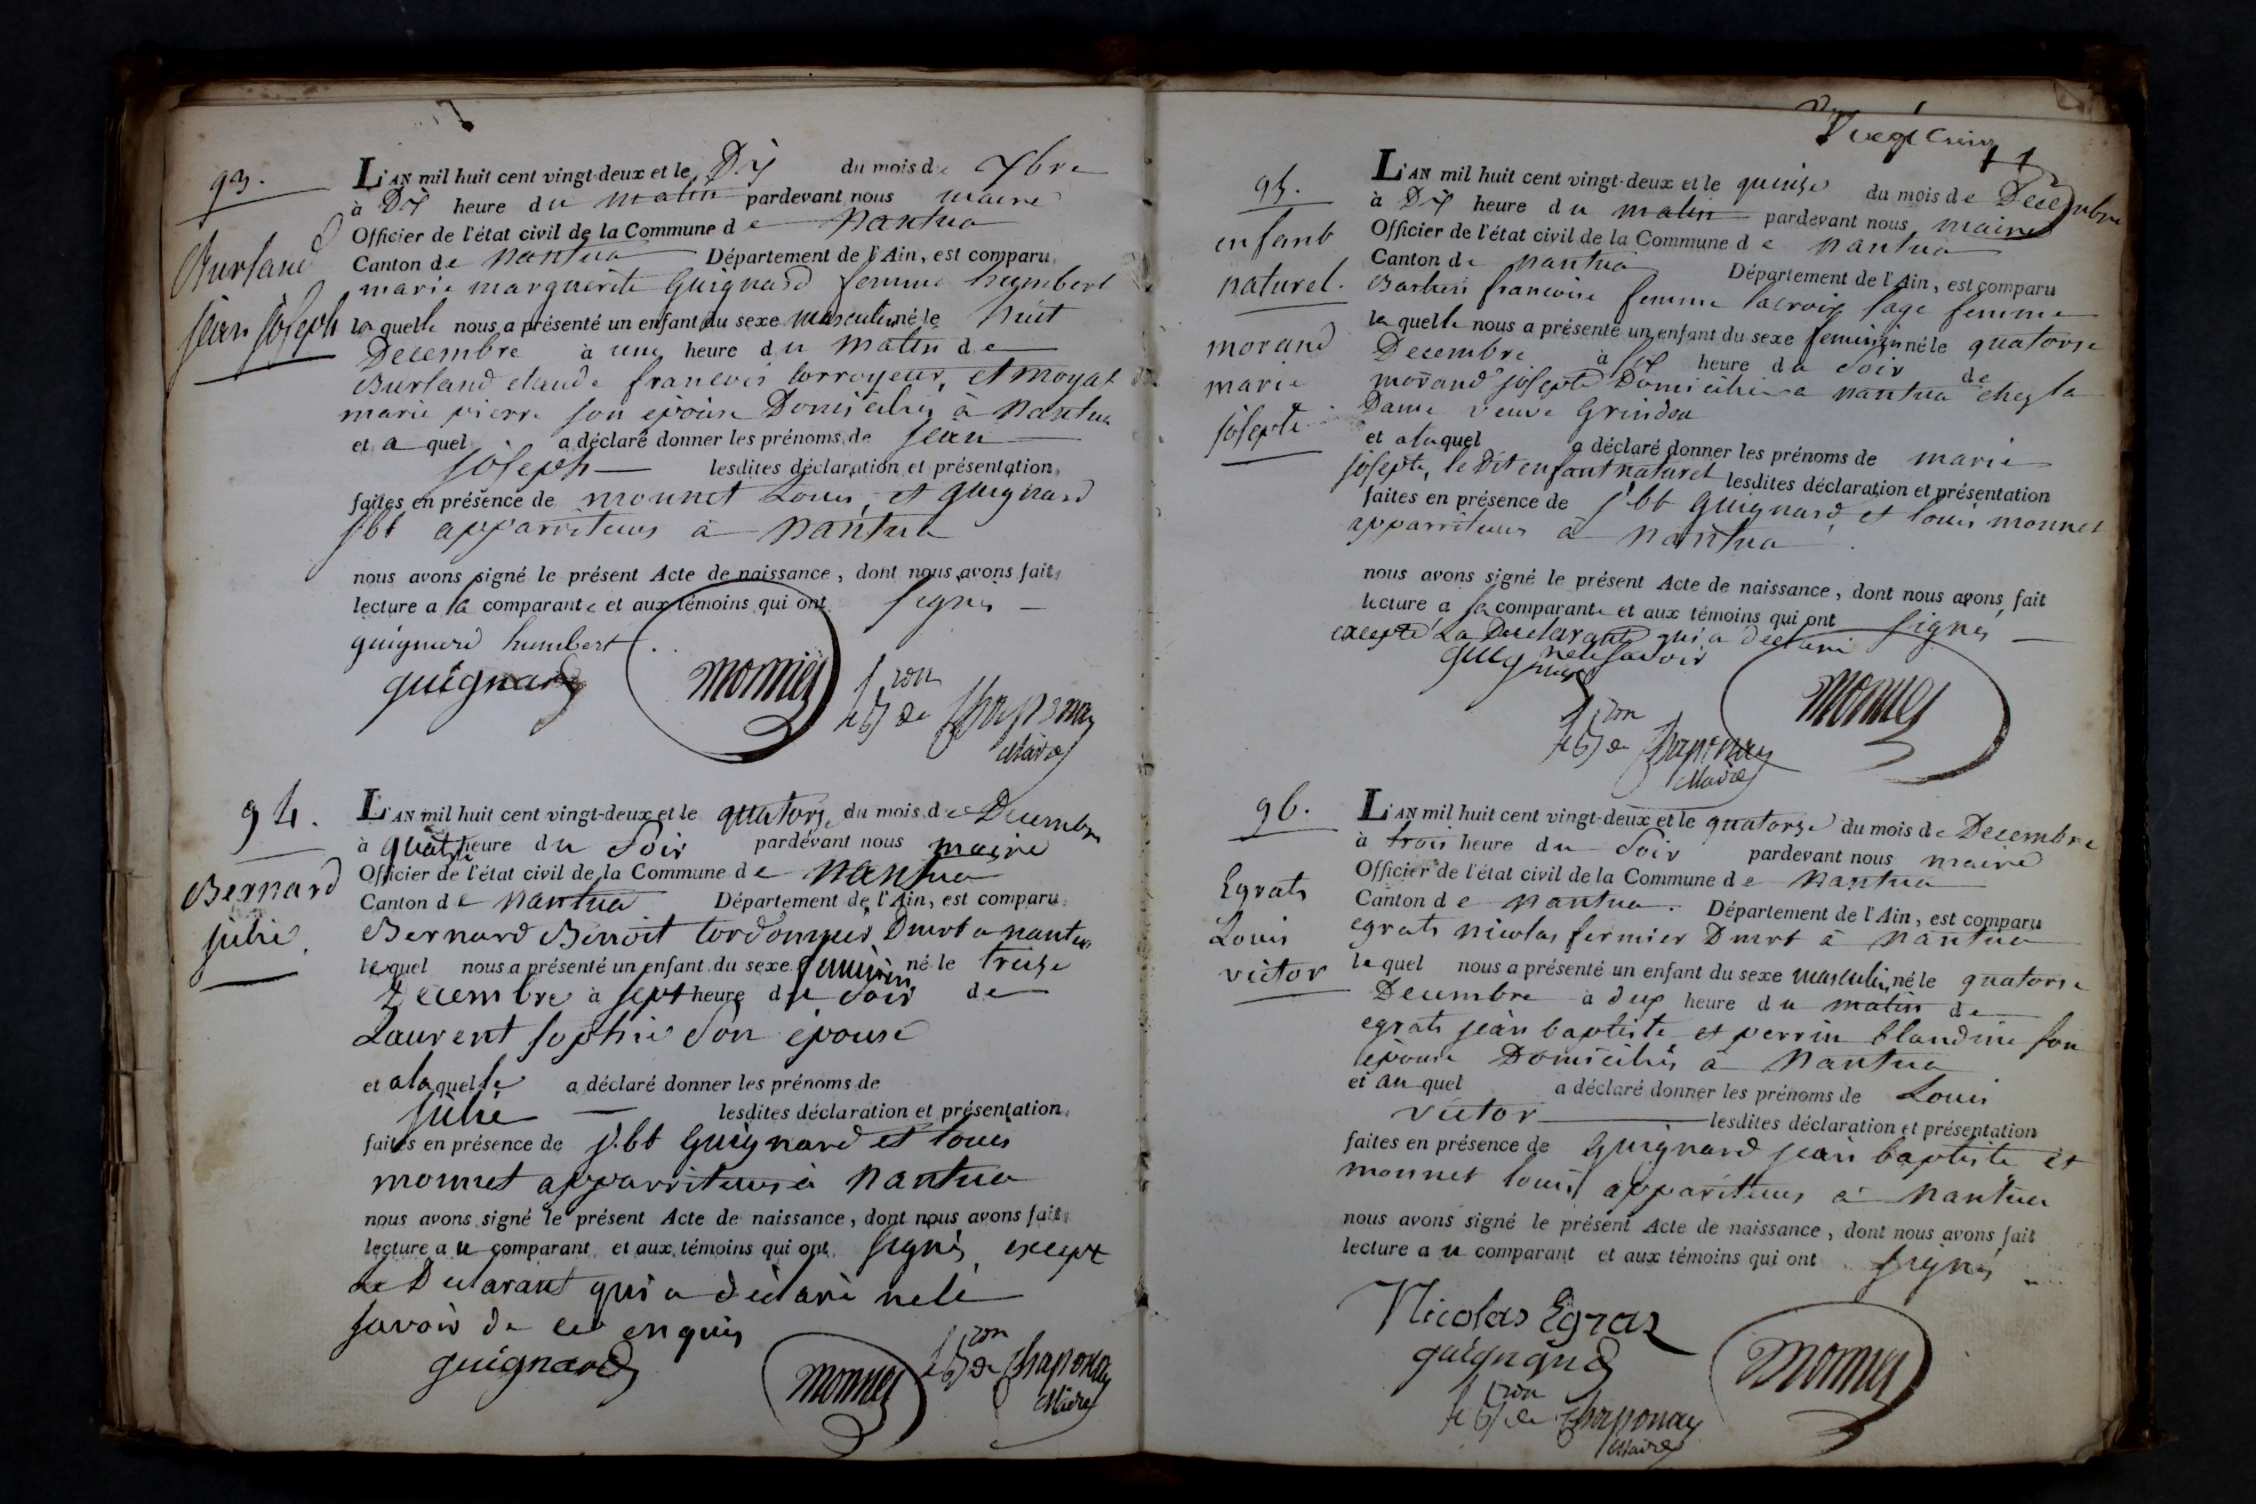 93.
Burland
jean joseph
L'AN mil huit cent vingt-deux et le Dix du mois de Xbre
à Dix heure du matin pardevant nous maire
Officier de l'état civil de la Commune de Nantua
Canton de Nantua Département de l'Ain, est comparu
marie marguerite Guignard femme humbert
laquelle nous a présenté un enfant du sexe masculin né le huit
Decembre à une heure du matin de
Burland claude francois corroyeur, et moyat
marie pierre son épouse Domiciliés à Nantua
et a quel a déclaré donner les prénoms de jean
joseph lesdites déclaration et présentation
faites en présence de monnet Louis, et guignard
j.bt apparriteurs à Nantua
nous avons signé le présent Acte de naissance, dont nous avons fait
lecture a la comparante et aux témoins qui ont signés
guignard humbert
guignard
monnet
le Bon de Chaponay
Maire
94.
Bernard
julie
L'AN mil huit cent vingt-deux et le quatorze du mois de Decembre
à quatre heure du Soir pardevant nous maire
Officier de l'état civil de la Commune de Nantua
Canton de Nantua Département de l'Ain, est comparu
Bernard Benoit Cordonnier Dmrt a nantua
lequel nous a présenté un enfant du sexe feminin né le treize
Decembre à sept heure du Soir de
Laurent Sophie Son épouse
et a laquelle a déclaré donner les prénoms de
julie lesdites déclaration et présentation
faites en présence de j.bt Guignard et louis
monnet apparriteurs à Nantua
nous avons signé le présent Acte de naissance, dont nous avons fait
lecture au comparant et aux témoins qui ont signés except
le Declarant qui a déclaré ne le
savoir de ce enquis
guignard
monnet
le Bon de Chaponay
Maire
Vingt cinq
95.
enfant
naturel.
morand
marie
josepte
L'AN mil huit cent vingt-deux et le quinze du mois de Decembre
à Dix heure du matin pardevant nous maire
Officier de l'état civil de la Commune de Nantua
Canton de Nantua Département de l'Ain, est comparu
francoise femme lacroix sage femme
laquelle nous a présenté un enfant du sexe feminin né le quatorze
Decembre à six heure du Soir de
morand josepte Domiciliée a nantua chez la
Dame veuve Grindon
et a laquel a déclaré donner les prénoms de marie
josepte, le dit enfant naturel lesdites déclaration et présentation
faites en présence de j.bt Guignard, et louis monnet
apparriteurs à Nantua
nous avons signé le présent Acte de naissance, dont nous avons fait
lecture a la comparante et aux témoins qui ont signés
excepté La Declarante qui a declaré
ne le savoir
guignard
monnet
le Bon de Chaponay
Maire
96.
Egrats
Louis
victor
L'AN mil huit cent vingt-deux et le quatorze du mois de Decembre
à trois heure du Soir pardevant nous maire
Officier de l'état civil de la Commune de Nantua
Canton de Nantua. Département de l'Ain, est comparu
egrats nicolas fermier Dmrt à Nantua
lequel nous a présenté un enfant du sexe masculin né le quatorze
Decembre à dux heure du matin de
egrats jean baptiste et perrin blandine son
épouse Domiciliés à Nantua
et au quel a déclaré donner les prénoms de Louis
victor lesdites déclaration et présentation
faites en présence de guignard jean baptiste et
monnet louis appariteurs à Nantua
nous avons signé le présent Acte de naissance, dont nous avons fait
lecture au comparant et aux témoins qui ont signés
Nicolas Egraz
guignard
monnet
le Bon de Chaponay
Maire